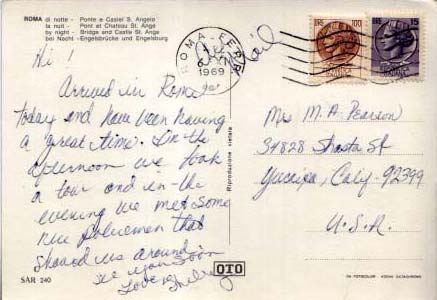 ROMA di notte - Ponte e Castel S. Angelo
la nuit - Pont et Chateau St. Ange
by night - Bridge and Castle St. Ange
bei Nacht - Engelsbrücke und Engelsburg
Hi!
Arrived in Rome
today and have been having
a great time. In the
afternoon we took
a tour and in the
evening we met some
nice policemen that
showed us around.
See you soon
Love
SAR 240
Riproduzione vietata
OTO
ROMA-FERR
1969
LIRE 100
15
Mrs M. A. Pearson
34828 Shasta St
Yucaipa, Caly. 92399
U.S.A.